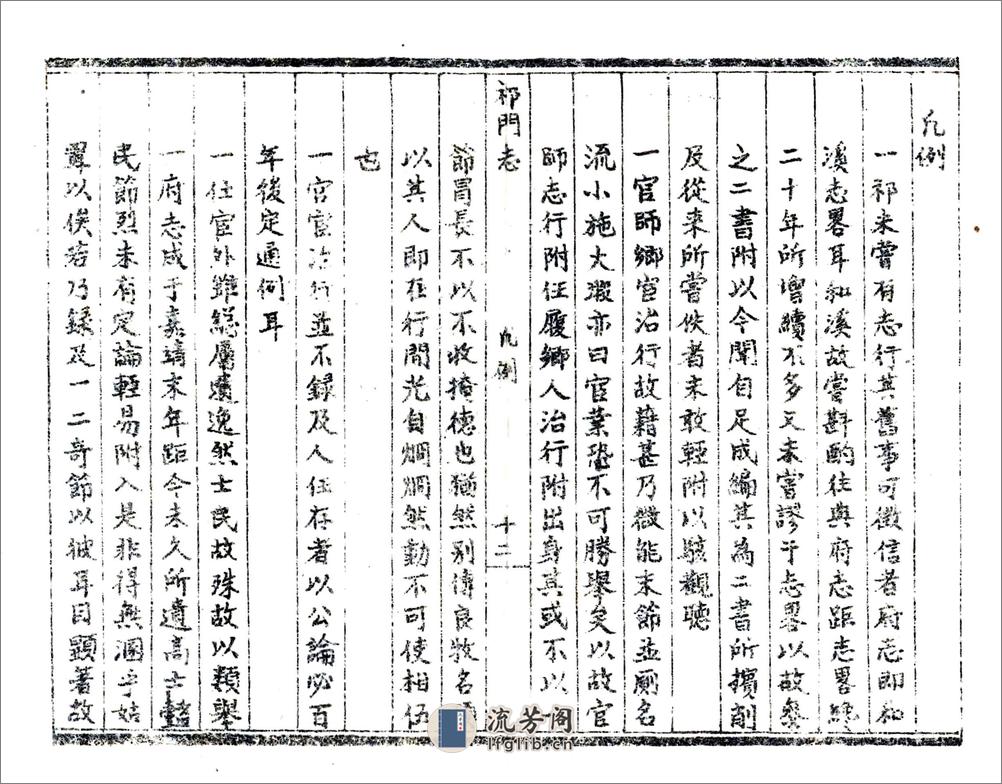 凡例
一祁未嘗有志行其舊事可徵信者府志即和
溪志畧耳和溪故嘗斟酌往與府志距志畧纔
二十年所增續不多又未嘗謬于志畧以故叅
之二書附以今聞自足成編其為二書所擯削
及從来所嘗佚者未敢輕附以駭觀聴
一官師鄉宦治行故籍甚乃微能末節並厠名
流小施大瑕亦曰宦業恐不可勝舉矣以故官
師志行附任履鄉人治行附出身其或不以
祁門志
凡例
十二
節冐長不以不收掩德也猶然别傳良牧名
以其人即在行間光自烱烱然動不可使相伍
也
一宫宦治行並不録及人任存者以公論必百
年後定通例耳
一任宦外雖総屬遺逸然士民故殊故以類舉
一府志成于嘉靖末年距今未久所遺高士
民節烈未有定論輕易附入是非得無溷乎姑
置以俟若乃録及一二奇節以彼耳目顯著故
流芳阁
lfglib.cn